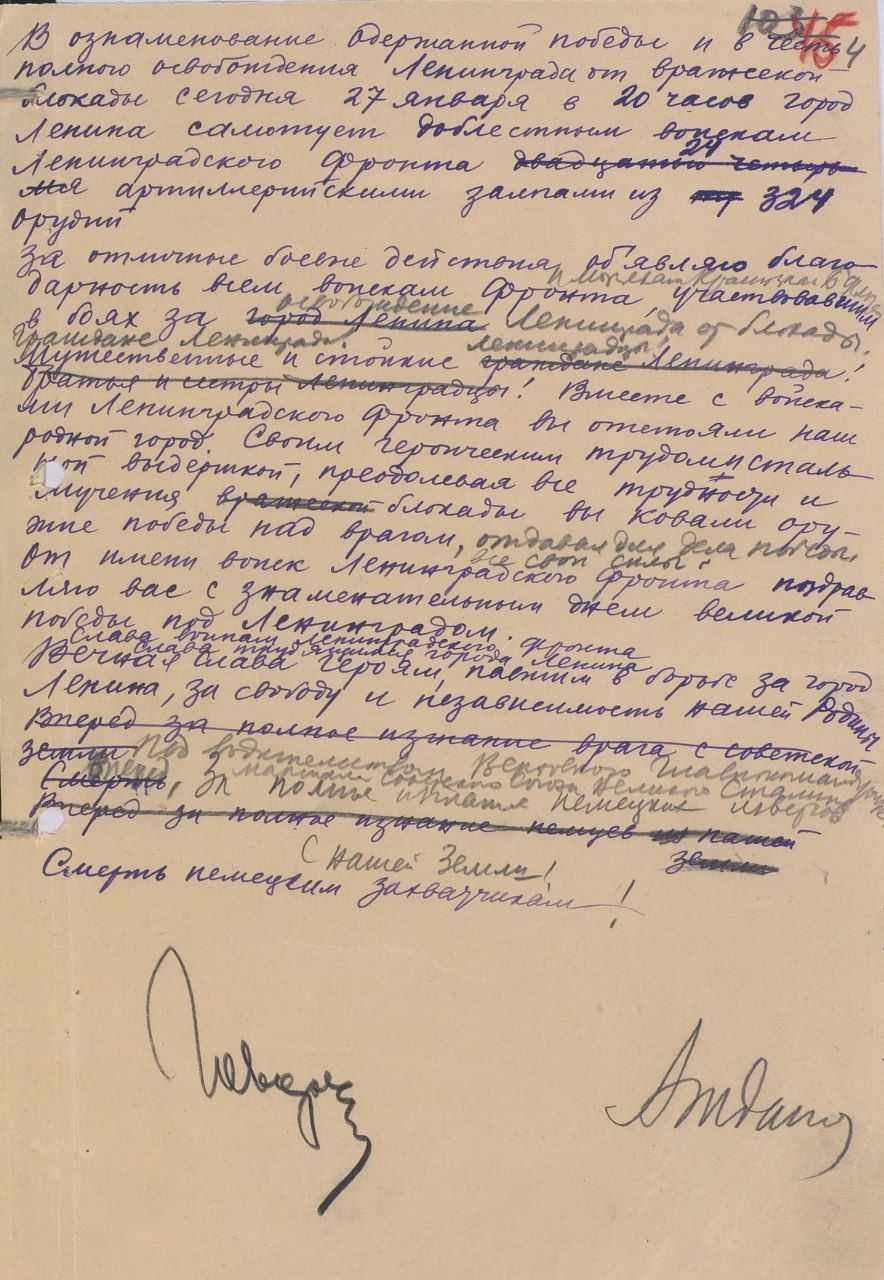 103 15 4
В ознаменование одержанной победы и в честь
полного освобождения Ленинграда от вражеской
блокады сегодня 27 января в 20 часов город
Ленина салютует доблестным войскам
24
Ленинградского фронта двадцатью четырь
мя артиллерийскими залпами из 324
орудий
За отличные боевые действия объявляю благо
и морякам Краснозн. Б. флота
дарность всем войскам фронта, участвовавшим
освобождение
в боях за город Ленина Ленинграда от блокады.
Граждане Ленинграда! ленинградцы!
Мужественные и стойкие граждане Ленинграда!
Братья и сестры Ленинградцы! Вместе с войска-
ми Ленинградского фронта вы отстояли наш
родной город. Своим героическим трудом и сталь
ной выдержкой, преодолевая все трудности и
мучения вражеской блокады вы ковали ору-
жие победы над врагом, отдавая для дела победы
все свои силы.
От имени войск Ленинградского фронта поздрав
ляю вас с знаменательным днем великой
победы под Ленинградом.
Слава воинам Ленинградского фронта
Слава трудящимся города Ленина
Вечная слава героям, павшим в борьбе за город
Ленина, за свободу и независимость нашей Родины
Вперед за полное изгнание врага с советской
земли Под водительством Верховного Главнокомандующего
Маршала Советского Союза Великого Сталина
Смерть Вперед, За полное изгнание немецких извергов
Вперед за полное изгнание немцев из нашей
земли
С нашей Земли!
Смерть немецким захватчикам!
Говоров
А Жданов